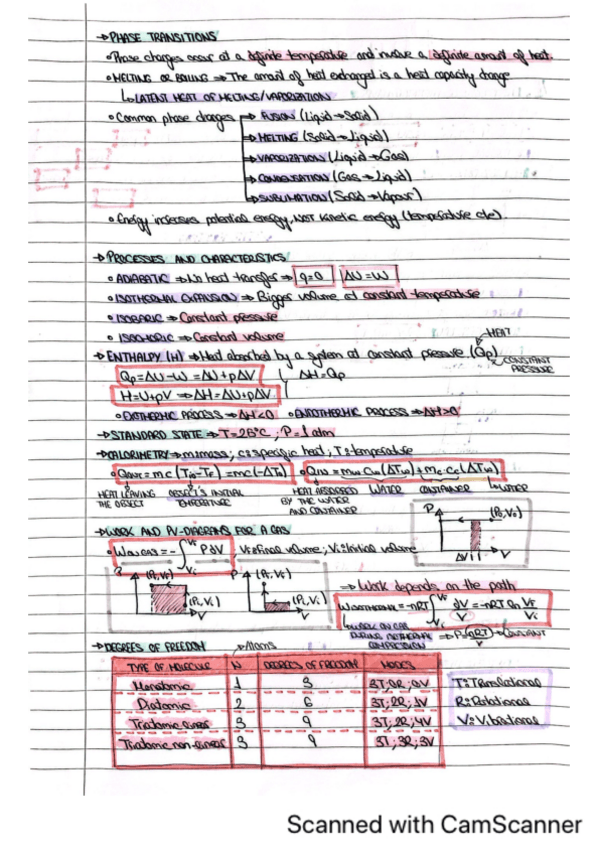 →PHASE TRANSITIONS
•Phase changes occur at a definite temperature and involve a definite amount of heat.
•MELTING OR BOILING ⇒ The amount of heat exchanged is a heat capacity change
↳LATENT HEAT OF MELTING/VAPORIZATION
•Common phase changes → FUSION (Liquid→Solid)
→MELTING (Solid→Liquid)
→VAPORIZATION (Liquid→Gas)
→CONDENSATION (Gas→Liquid)
→SUBLIMATION (Solid→Vapour)
•Energy increases potential energy, NOT kinetic energy (temperature cte).
→PROCESSES AND CHARACTERISTICS
•ADIABATIC ⇒ No heat transfer ⇒ q=0 ΔU=W
•ISOTHERMAL EXPANSION ⇒ Bigger volume at constant temperature
•ISOBARIC ⇒ Constant pressure
•ISOCHORIC ⇒ Constant volume
→HEAT
→ENTHALPY (H) ⇒ Heat absorbed by a system at constant pressure (Qp)
CONSTANT PRESSURE
Qp=ΔU-W=ΔU+pΔV ΔH=Qp
H=U+pV ⇒ ΔH=ΔU+pΔV
•EXOTHERMIC PROCESS ⇒ ΔH<0 •ENDOTHERMIC PROCESS ⇒ ΔH>0
→STANDARD STATE ⇒ T=25°C; P=1 atm
→CALORIMETRY ⇒ m:mass; c:specific heat; T:temperature
HEAT LEAVING THE OBJECT OBJECT'S INITIAL TEMPERATURE HEAT ABSORBED BY THE WATER AND CONTAINER WATER CONTAINER WATER
→WORK AND PV-DIAGRAMS FOR A GAS
P (Pi,Vi) ΔV V
; Vf:Final volume; Vi:Initial volume
P (Pf,Vf) (Pi,Vi) V
P (Pi,Vi) V
⇒ Work depends on the path
→DEGREES OF FREEDOM →Atoms
TYPE OF MOLECULE N DEGREES OF FREEDOM MODES
Monatomic 1 3 3T;0R;0V
Diatomic 2 6 3T;2R;1V
Triatomic linear 3 9 3T;2R;4V
Triatomic non-linear 3 9 3T;3R;3V
T:Translational
R:Rotational
V:Vibrational
Scanned with CamScanner